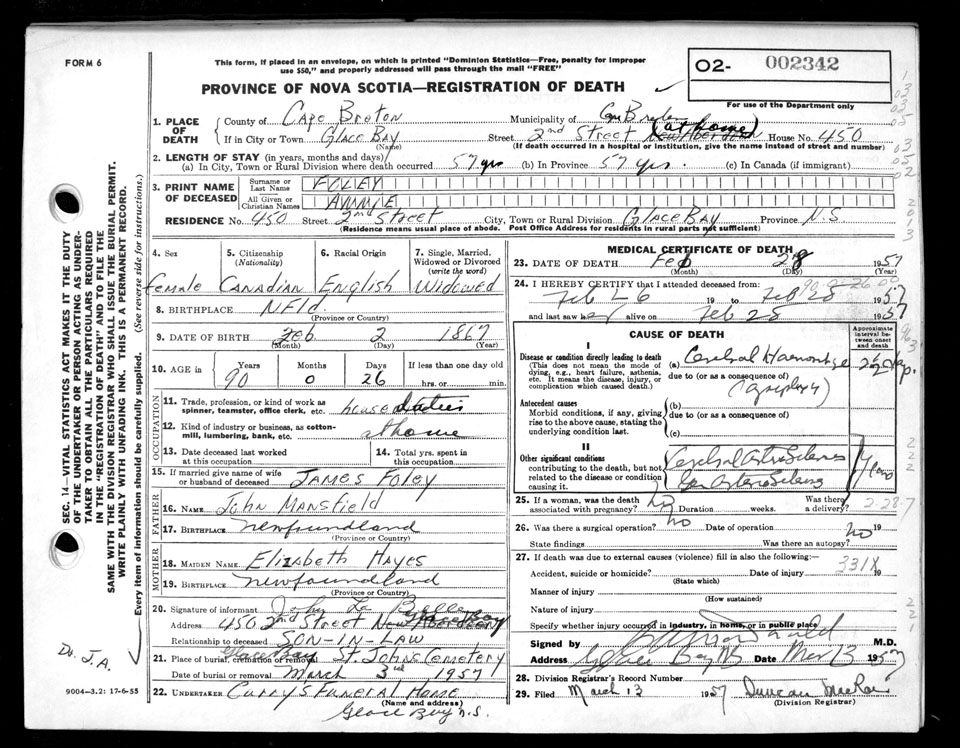 FORM 6
This form, if placed in an envelope, on which is printed "Dominion Statistics—Free, penalty for improper
use $50," and properly addressed will pass through the mail "FREE"
PROVINCE OF NOVA SCOTIA—REGISTRATION OF DEATH
02- 002342
For use of the Department only
1. PLACE OF DEATH
County of Cape Breton Municipality of
If in City or Town Glace Bay Street 2nd Street (at home) House No. 450
(Name) (If death occurred in a hospital or institution, give the name instead of street and number)
2. LENGTH OF STAY (in years, months and days)
(a) In City, Town or Rural Division where death occurred 57 yrs (b) In Province 57 yrs. (c) In Canada (if immigrant)
3. PRINT NAME OF DECEASED
Surname or Last Name FOLEY
All Given or Christian Names ANNIE
RESIDENCE No. 450 Street 2nd Street City, Town or Rural Division Glace Bay Province N.S.
(Residence means usual place of abode. Post Office Address for residents in rural parts not sufficient)
4. Sex 5. Citizenship (Nationality) 6. Racial Origin 7. Single, Married, Widowed or Divorced (write the word)
female Canadian English Widowed
8. BIRTHPLACE NFld.
(Province or Country)
9. DATE OF BIRTH Feb 2 1867
(Month) (Day) (Year)
10. AGE IN Years Months Days If less than one day old
90 0 26 hrs. or min.
OCCUPATION
11. Trade, profession, or kind of work as
spinner, teamster, office clerk, etc. house duties
12. Kind of industry or business, as cotton-
mill, lumbering, bank, etc. at home
13. Date deceased last worked
at this occupation
14. Total yrs. spent in
this occupation
15. If married give name of wife
or husband of deceased James Foley
FATHER
16. NAME John Mansfield
17. BIRTHPLACE Newfoundland
(Province or Country)
MOTHER
18. MAIDEN NAME Elizabeth Hayes
19. BIRTHPLACE Newfoundland
(Province or Country)
20. Signature of informant John
Address 450 2nd Street
Relationship to deceased SON-IN-LAW
21. Place of burial, cremation or removal Glace Bay St. Johns Cemetery
Date of burial or removal March 3rd 1957
22. UNDERTAKER Curry's Funeral Home
(Name and address)
Glace Bay N.S.
MEDICAL CERTIFICATE OF DEATH
23. DATE OF DEATH Feb 28 1957
(Month) (Day) (Year)
24. I HEREBY CERTIFY that I attended deceased from:
Feb 26 19 to Feb 28 1957
and last saw her alive on Feb 28 1957
CAUSE OF DEATH
Approximate interval between onset and death
I
Disease or condition directly leading to death
(This does not mean the mode of
dying, e.g., heart failure, asthenia,
etc. It means the disease, injury, or
complication which caused death.)
(a) Cerebral Haemorrhage 2½ days
due to (or as a consequence of)
(apoplexy)
Antecedent causes
Morbid conditions, if any, giving
rise to the above cause, stating the
underlying condition last.
(b)
due to (or as a consequence of)
(c)
II
Other significant conditions
contributing to the death, but not
related to the disease or condition
causing it.
Cerebral Arterio Sclerosis
Gen Arterio Sclerosis
25. If a woman, was the death
associated with pregnancy? no Duration weeks. Was there a delivery?
2-28-7
26. Was there a surgical operation? no Date of operation 19
State findings Was there an autopsy? no
27. If death was due to external causes (violence) fill in also the following:—
Accident, suicide or homicide? Date of injury 19
331X
(State which)
Manner of injury
(How sustained)
Nature of injury
Specify whether injury occurred in industry, in home, or in public place
Signed by M.D.
Address Glace Bay NS Date Mar 13 1957
28. Division Registrar's Record Number
29. Filed March 13 1957 Duncan MacRae
(Division Registrar)
SEC. 14—VITAL STATISTICS ACT MAKES IT THE DUTY
OF THE UNDERTAKER OR PERSON ACTING AS UNDER-
TAKER TO OBTAIN ALL THE PARTICULARS REQUIRED
IN THE "REGISTRATION OF DEATH" AND TO FILE THE
SAME WITH THE DIVISION REGISTRAR WHO SHALL ISSUE THE BURIAL PERMIT.
WRITE PLAINLY WITH UNFADING INK. THIS IS A PERMANENT RECORD.
Every item of information should be carefully supplied. (See reverse side for instructions.)
Dr. J.A.
9004—3.2: 17-6-55